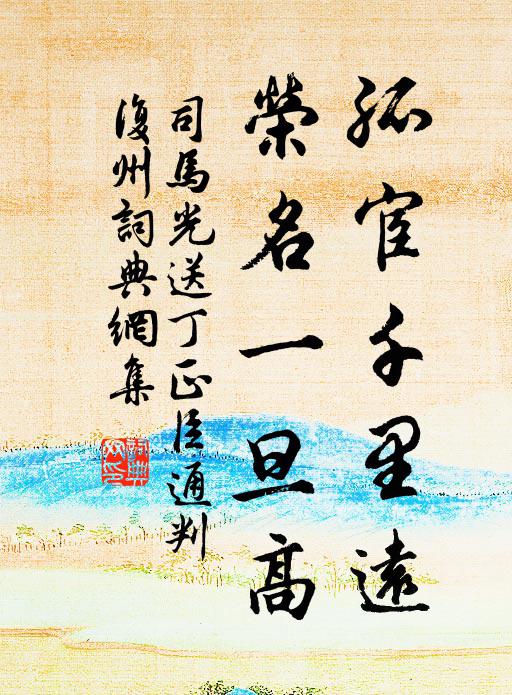 孤宦千里遠
榮名一旦高
司馬光送丁正臣通判
復州詞典網集